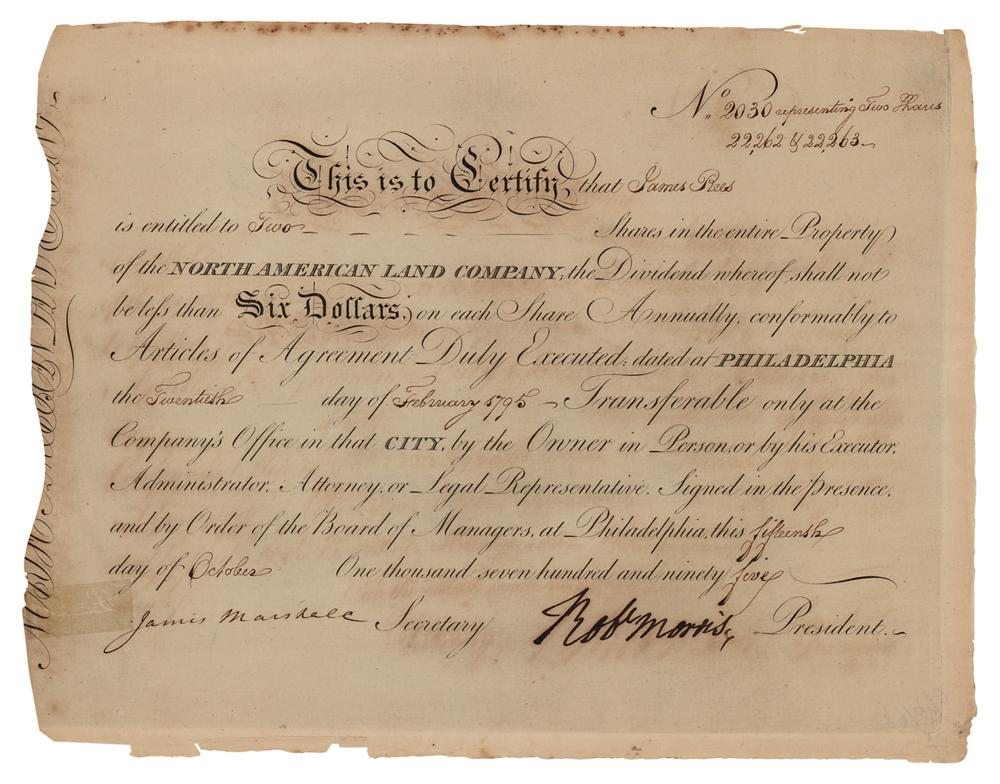 No. 2030 representing Two Shares
22,262 & 22,263.
This is to Certify, that James Rees
is entitled to Two Shares in the entire Property
of the NORTH AMERICAN LAND COMPANY, the Dividend whereof shall not
be leſs than Six Dollars, on each Share Annually, conformably to
Articles of Agreement Duly Executed; dated at PHILADELPHIA
the Twentieth day of February 1795 Transferable only at the
Company's Office in that CITY, by the Owner in Person, or by his Executor,
Administrator, Attorney, or Legal Representative. Signed in the Presence,
and by Order of the Board of Managers, at Philadelphia, this fifteenth
day of October One thousand seven hundred and ninety five
James Marshall Secretary Robt Morris, President.